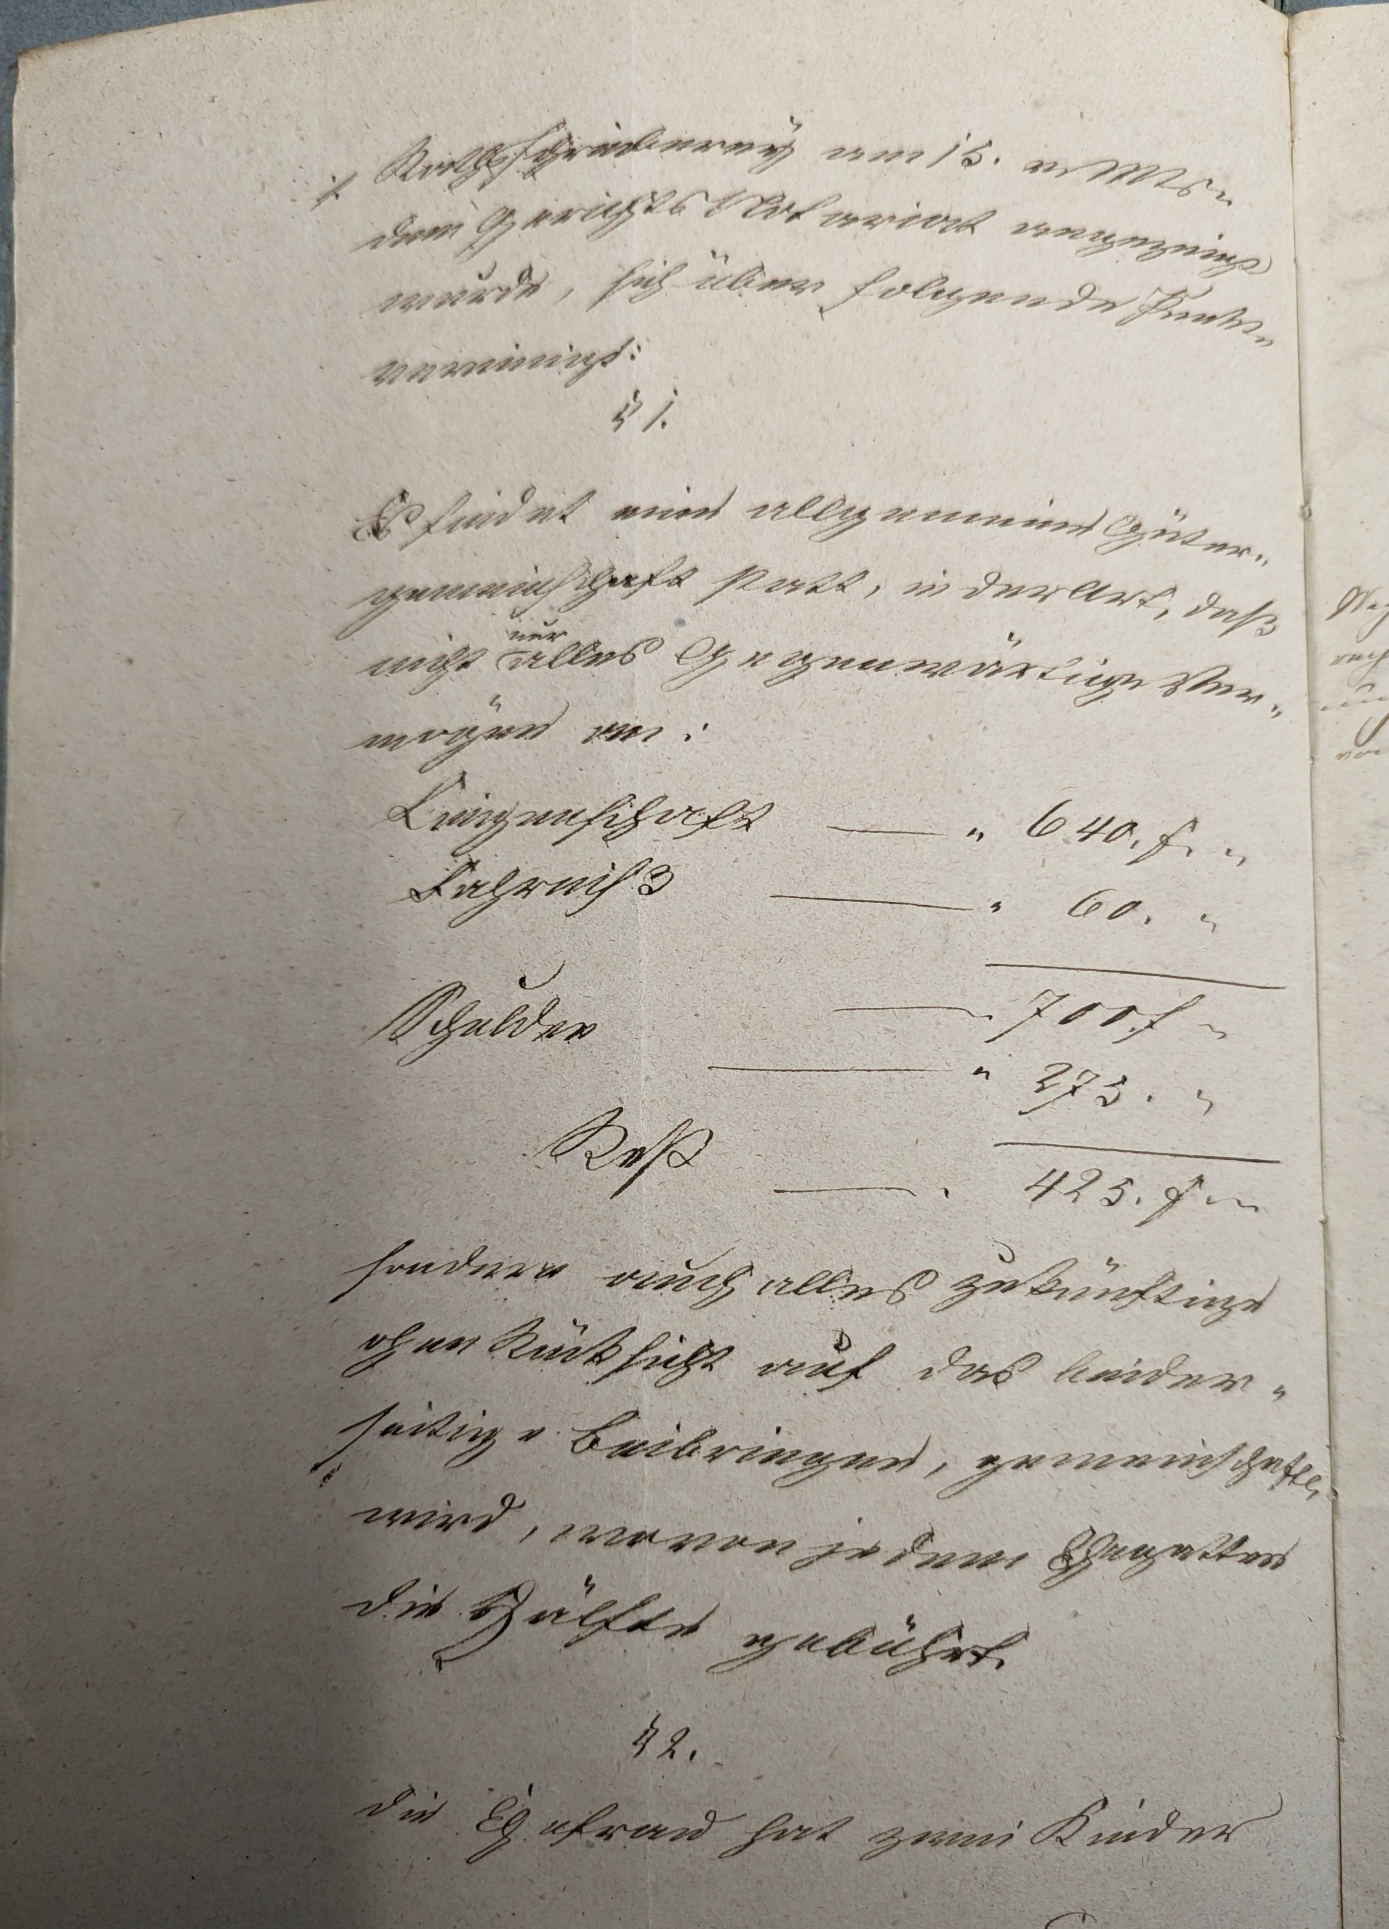 Rathsschreiberey am 15. v. Mts.
dem Gerichts Notariat angezeigt
wurde, sich über folgende Punkte
vereinigt:
§ 1.
Es findet eine allgemeine Güter„
gemeinschaft statt, in der Art, daß
nur
nicht alles Gegenwärtige Ver„
mögen an:
Liegenschaft — „ 640. f. „
Fahrniß — „ 60. „
— 700. f „
Schulden — „ 275. „
Rest — . 425. f „
sondern auch alles zukünftige
ohne Rücksicht auf das beider„
seitige Beibringen, gemeinschaftl.
wird, wovon jedem Ehegatten
die Hälfte gebührt.
§ 2.
die Ehefrau hat zwei Kinder